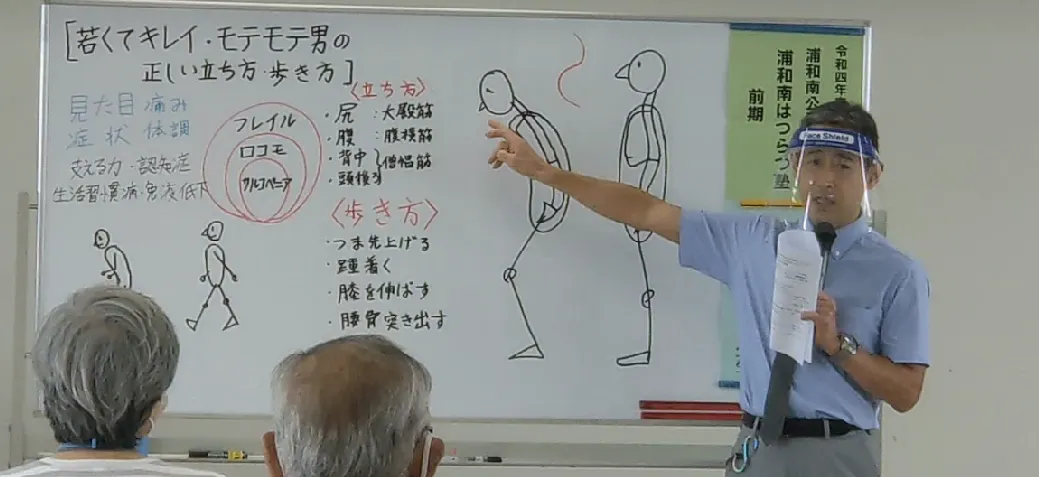 [若くてキレイ・モテモテ男の
正しい立ち方・歩き方]
見た目 痛み
症状 体調
支える力・認知症
生活習慣病・免疫低下
フレイル
ロコモ
サルコペニア
〈立ち方〉
・尻:大殿筋
・腹:腹横筋
・背中}僧帽筋
・頭
〈歩き方〉
・つま先上げる
・踵着く
・膝を伸ばす
・腰骨突き出す
令和四年
浦和南公
浦和南はつらつ塾
前期
Face Shield